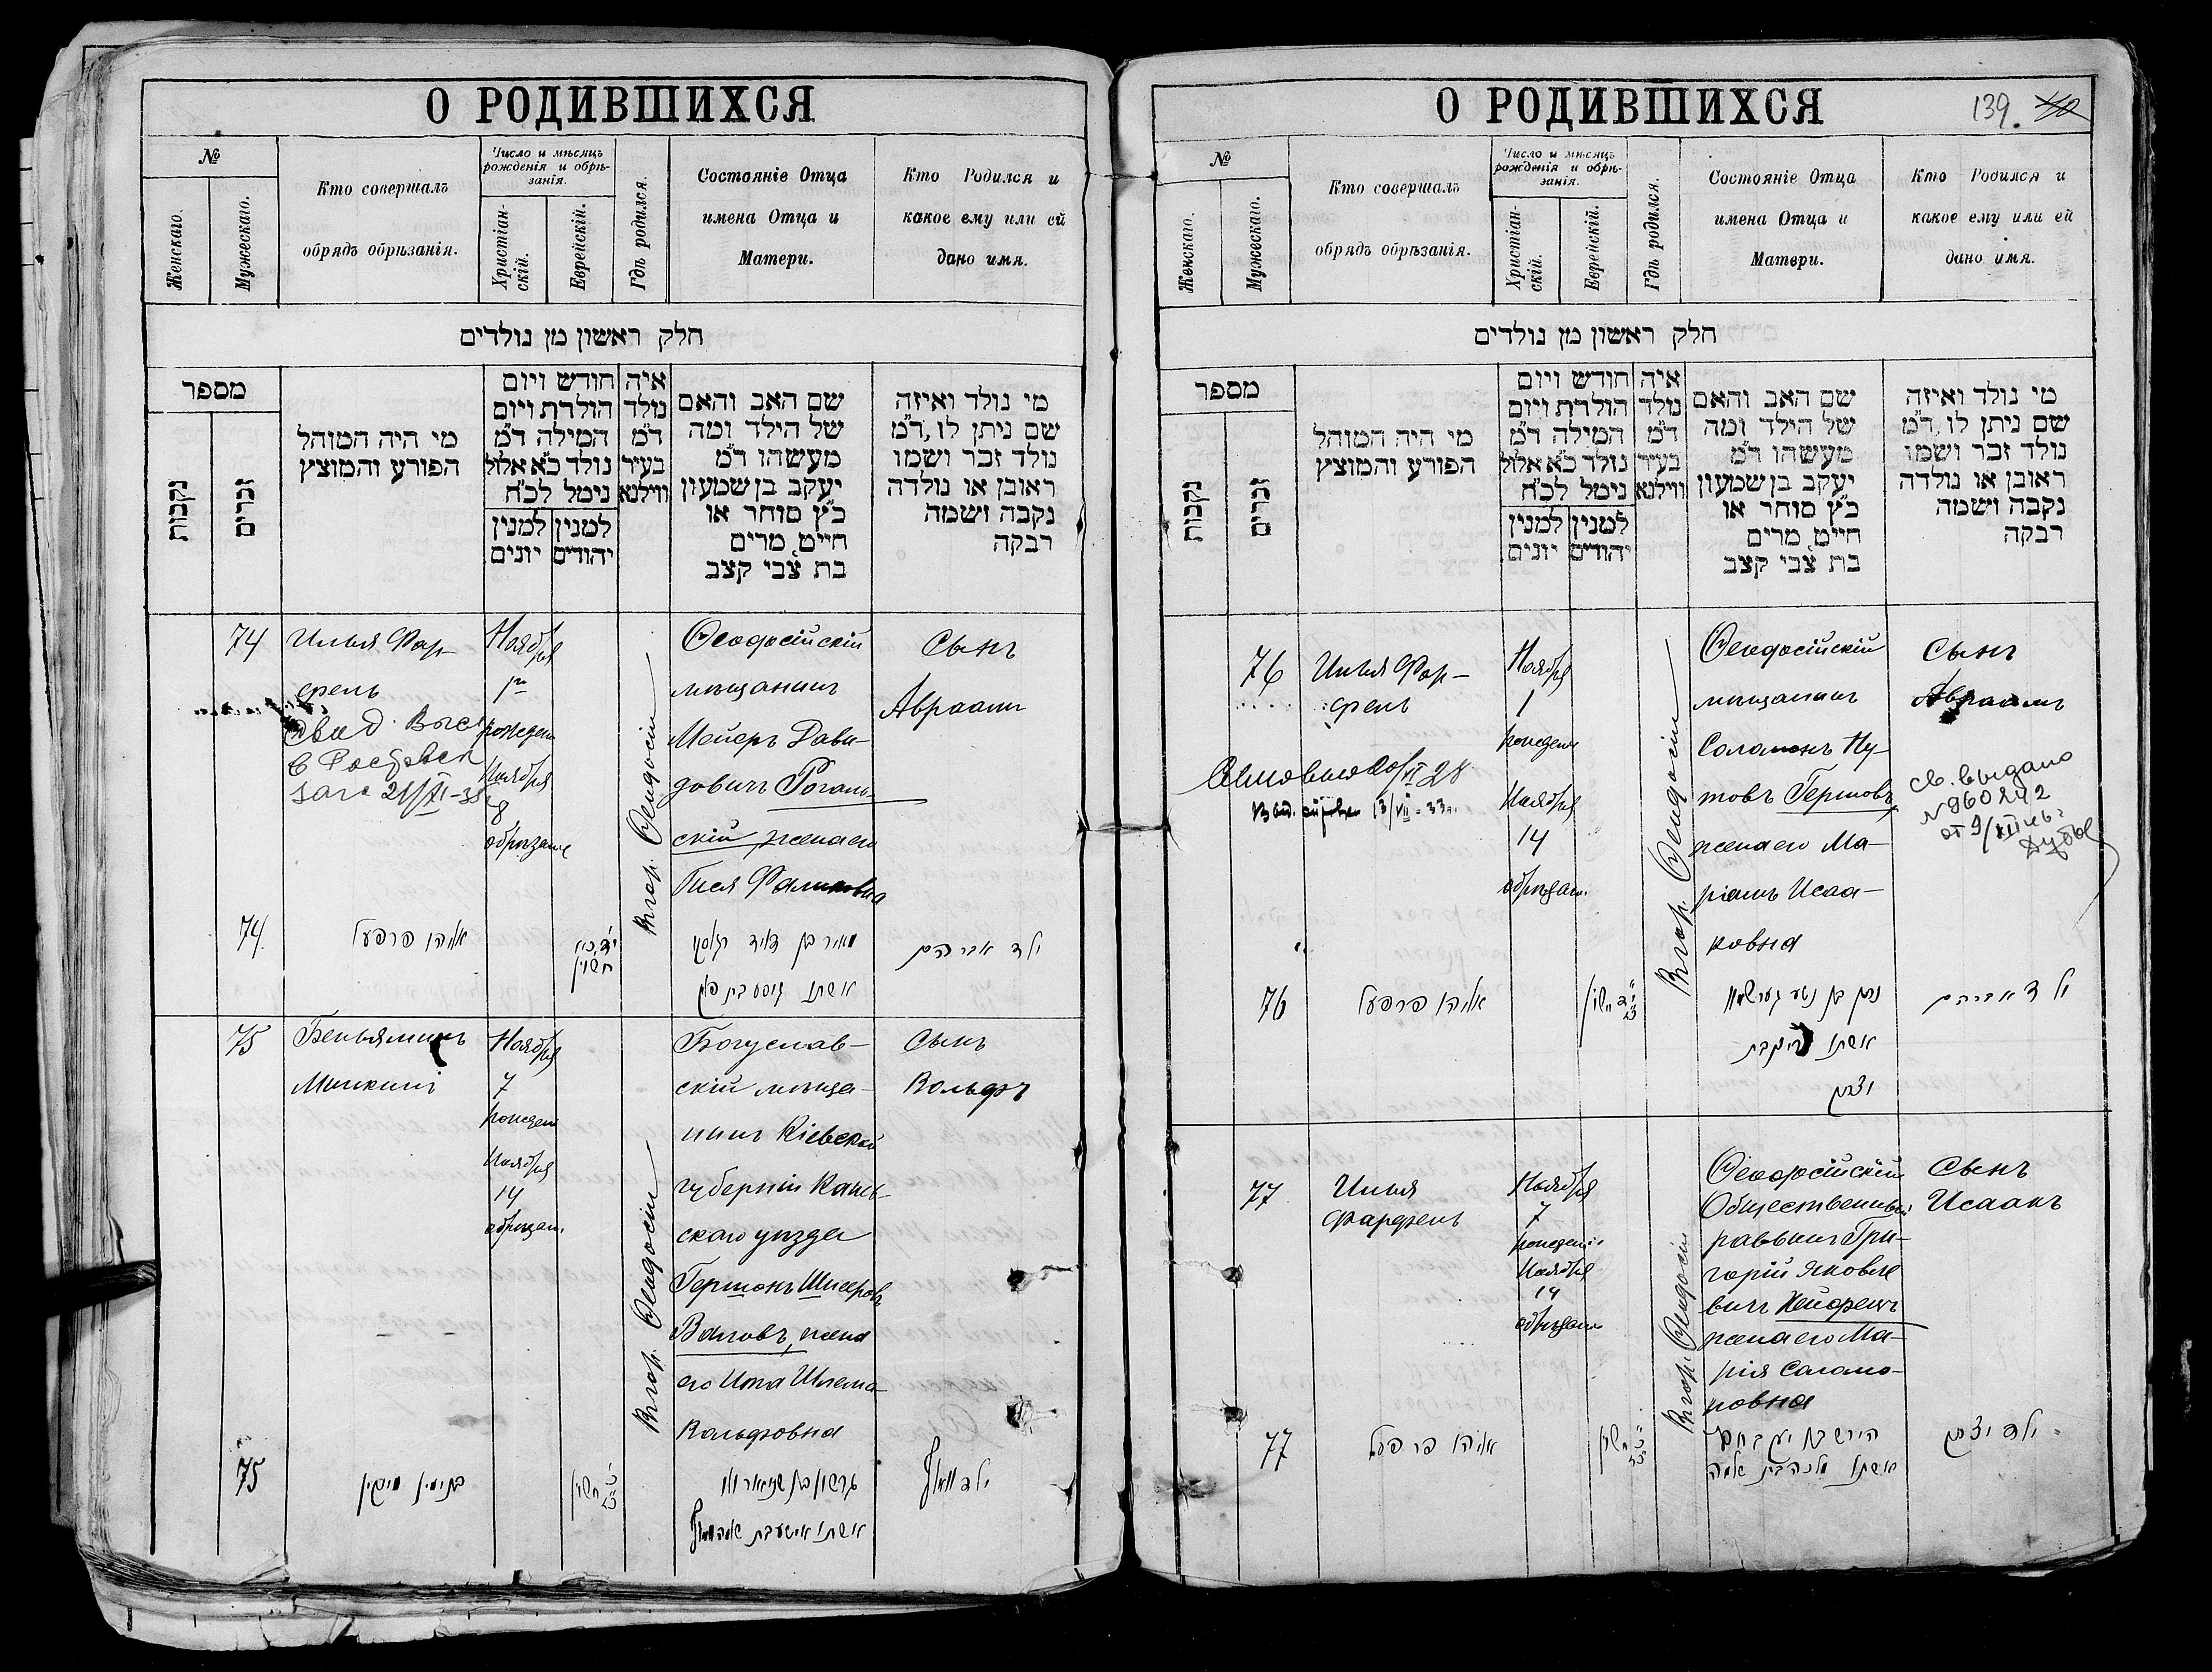 О РОДИВШИХСЯ
№
Женскаго.
Мужескаго.
Кто совершалъ
обрядъ обрѣзанія.
Число и мѣсяцъ
рожденія и обрѣ-
занія.
Христіан-
скій.
Еврейскій.
Гдѣ родился.
Состояніе Отца
имена Отца и
Матери.
Кто Родился и
какое ему или ей
дано имя.
חלק ראשון מן נולדים
מספר
נקבות
זכרים
מי היה המוהל
הפורע והמוצץ
חודש ויום
הולדת ויום
המילה ד״מ
נולד כ״א אלול
נימל לכ״ח
למנין
יונים
למנין
יהודים
איה
נולד
ד״מ
בעיר
ווילנא
שם האב והאם
של הילד ומה
מעשהו ד״מ
יעקב בן שמעון
כ״ץ סוחר או
חייט, מרים
בת צבי קצב
מי נולד ואיזה
שם ניתן לו, ד״מ
נולד זכר ושמו
ראובן או נולדה
נקבה ושמה
רבקה
74
Илья Фар-
фель
Ноября
1го
рожден
Ноября
8
обрѣзание
Вгор. Ѳеодосіи
Ѳеодосійскій
мѣщанинъ
Мейеръ Дави-
довичъ Рогаль-
скій, жена его
Гися Фаликовна
Сынъ
Авраамъ
в Ростовск
загс 21/XI-35
74.
אליהו פרפעל
חשון
ילד אברהם
75
Беньяминъ
Минкинъ
Ноября
7
рожден
Ноября
14
обрѣзан.
Вгор. Ѳеодосіи
Богуслав-
скій мѣща-
нинъ Кіевской
губерніи Канев-
скаго уѣзда
Гершонъ Шнееровъ
Воловъ, жена
его Ита Шлема-
Вольфовна
Сынъ
Вольфъ
75
בנימין מינקין
חשון
ילד וואלף
О РОДИВШИХСЯ
139.
№
Женскаго.
Мужескаго.
Кто совершалъ
обрядъ обрѣзанія.
Число и мѣсяцъ
рожденія и обрѣ-
занія.
Христіан-
скій.
Еврейскій.
Гдѣ родился.
Состояніе Отца
имена Отца и
Матери.
Кто Родился и
какое ему или ей
дано имя.
חלק ראשון מן נולדים
מספר
נקבות
זכרים
מי היה המוהל
הפורע והמוצץ
חודש ויום
הולדת ויום
המילה ד״מ
נולד כ״א אלול
נימל לכ״ח
למנין
יונים
למנין
יהודים
איה
נולד
ד״מ
בעיר
ווילנא
שם האב והאם
של הילד ומה
מעשהו ד״מ
יעקב בן שמעון
כ״ץ סוחר או
חייט, מרים
בת צבי קצב
מי נולד ואיזה
שם ניתן לו, ד״מ
נולד זכר ושמו
ראובן או נולדה
נקבה ושמה
רבקה
76
Илья Фар-
фель
Ноября
1
рожден
Ноября
14
обрѣзан.
Вгор. Ѳеодосіи
Ѳеодосійскій
мѣщанинъ
Соломонъ Ну-
товъ Гершовъ,
жена его Ма-
ріамъ Исаа-
ковна
Сынъ
Авраамъ
св. выдано
№960242
13/VII-33г.
76
אליהו פרפעל
חשון
ילד אברהם
אשתו
77
Илья
Фарфель
Ноября
7
рожден.
Ноября
14
обрѣзан
Вгор. Ѳеодосіи
Ѳеодосійскій
Общественный
раввинъ Гри-
горій Яковле
вичъ Нейфельдъ
жена его Ма-
рія Соломо-
новна
Сынъ
Исаакъ
77
אליהו פרפעל
חשון
אשתו מלכה בת שלמה
ילד יצחק